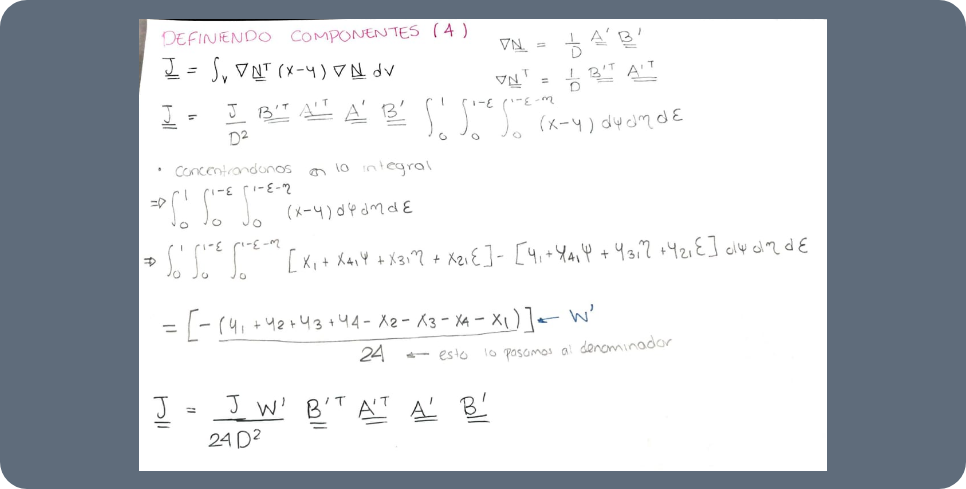 DEFINIENDO COMPONENTES (4)
∇N = 1/D A' B'
J = ∫v ∇Nᵀ (x-y) ∇N dv
∇Nᵀ = 1/D B'ᵀ A'ᵀ
J = J/D² B'ᵀ A'ᵀ A' B' ∫₀¹ ∫₀^1-ε ∫₀^1-ε-η (x-y) dψ dη dε
• Concentrandonos en la integral
⇒ ∫₀¹ ∫₀^1-ε ∫₀^1-ε-η (x-y) dψ dη dε
⇒ ∫₀¹ ∫₀^1-ε ∫₀^1-ε-η [x₁ + x₄₁ψ + x₃₁η + x₂₁ε] - [y₁ + y₄₁ψ + y₃₁η + y₂₁ε] dψ dη dε
= [-(y₁ + y₂ + y₃ + y₄ - x₂ - x₃ - x₄ - x₁)] ← W'
24 ← esto lo pasamos al denominador
J = J W' / 24D² B'ᵀ A'ᵀ A' B'